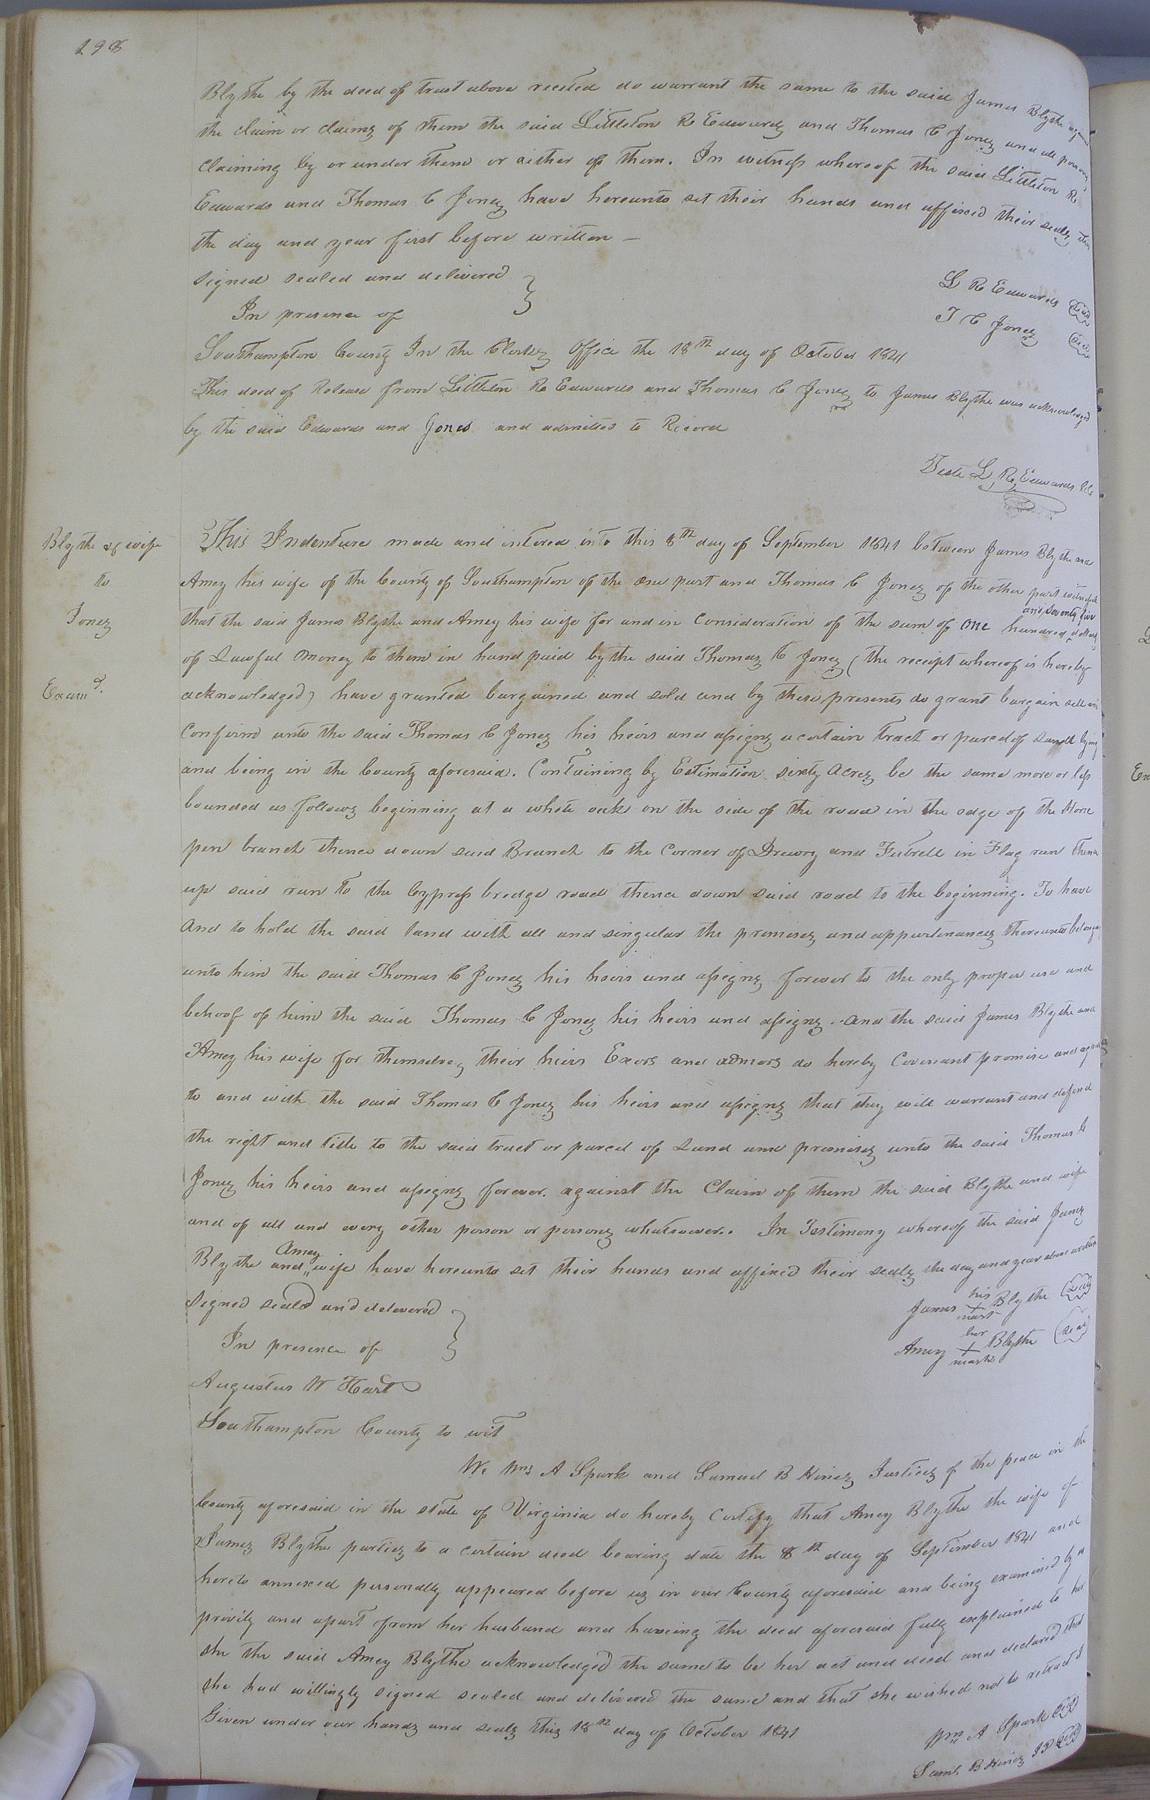 298
Blythe by the deed of trust above recited do warrant the same to the said James Blythe against
the claim or claims of them the said Littleton R Edwards and Thomas C Jones and all persons
claiming by or under them or either of them. In witness whereof the said Littleton R
Edwards and Thomas C Jones have hereunto set their hands and affixed their seals this
the day and year first before written —
Signed sealed and delivered
In presence of
L R Edwards (Seal)
T C Jones (Seal)
Southampton County In the Clerks Office the 18th day of October 1841
This deed of Release from Littleton R Edwards and Thomas C Jones to James Blythe was acknowledged
by the said Edwards and Jones and admitted to Record
Teste L. R. Edwards Clk
Blythe & wife
to
Jones
Examd.
This Indenture made and entered into this 8th day of September 1841 between James Blythe and
Amey his wife of the County of Southampton of the one part and Thomas C Jones of the other part witnesseth
that the said James Blythe and Amey his wife for and in Consideration of the sum of one hundred and seventy five dollars
of Lawful money to them in hand paid by the said Thomas C Jones (the receipt whereof is hereby
acknowledged) have granted bargained and sold and by these presents do grant bargain sell and
Confirm unto the said Thomas C Jones his heirs and assigns a certain tract or parcel of Land lying
and being in the County aforesaid. Containing by Estimation sixty Acres be the same more or less
bounded as follows beginning at a white oak on the side of the road in the edge of the Horse
pen branch thence down said Branch to the Corner of Drewry and Futrell in Flag run thence
up said run to the Cypress bridge road thence down said road to the beginning. To have
And to hold the said land with all and singular the premises and appurtenances thereunto belonging
unto him the said Thomas C Jones his heirs and assigns forever to the only proper use and
behoof of him the said Thomas C Jones his heirs and assigns. And the said James Blythe and
Amey his wife for themselves their heirs Exors and admors do hereby Covenant promise and agree
to and with the said Thomas C Jones his heirs and assigns that they will warrant and defend
the right and title to the said tract or parcel of Land and premises unto the said Thomas C
Jones his heirs and assigns forever. against the Claim of them the said Blythe and wife
and of all and every other person or persons whatsoever. In Testimony whereof the said James
Blythe and Amey wife have hereunto set their hands and affixed their seals the day and year above written
Signed seald and delivered
In presence of
James his + mark Blythe (Seal)
Amey her + mark Blythe (Seal)
Augustus W Hart
Southampton County to wit
We Wm A Spark and Samuel B Hines Justices of the peace in the
County aforesaid in the state of Virginia do hereby Certify that Amey Blythe the wife of
James Blythe parties to a certain deed bearing date the 8th day of September 1841 and
hereto annexed personally appeared before us in our County aforesaid and being examined by us
privily and apart from her husband and having the deed aforesaid fully explained to her
she the said Amey Blythe acknowledged the same to be her act and deed and declared that
she had willingly signed sealed and delivered the same and that she wished not to retract it
Given under our hands and seals this 18th day of October 1841
Wm A Spark
Saml B Hines JP